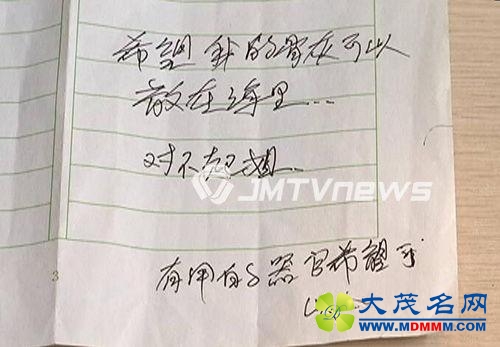 希望我的骨灰可以
放在海里...
对不起
JMTVnews
有用的器官希望可
3
大茂名网
WWW.MDMMM.COM